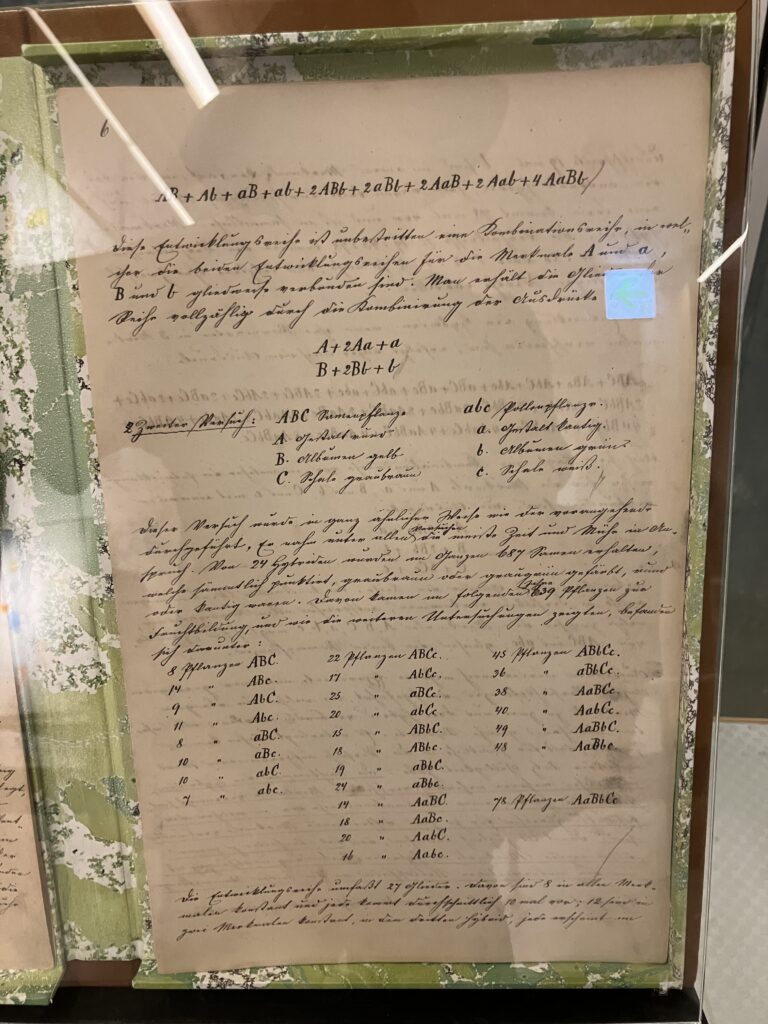 6
AB + Ab + aB + ab + 2ABb + 2aBb + 2AaB + 2Aab + 4AaBb
Diese Entwicklungsreihe ist unbestritten eine Kombinationsreihe, in wel-
cher die beiden Entwicklungsreihen für die Merkmale A und a,
B und b gliedweise verbunden sind. Man erhält die Glieder der
Reihe vollzählig durch die Kombinirung der Ausdrücke
A + 2Aa + a
B + 2Bb + b
Zweiter Versuch: ABC Samenpflanze abc Pollenpflanze.
A. Gestalt rund a. Gestalt kantig.
B. Albumen gelb b. Albumen grün
C. Schale graubraun c. Schale weiß.
Dieser Versuch wurde in ganz ähnlicher Weise wie der vorangehende
durchgeführt, Er nahm unter allen Versuchen die meiste Zeit und Mühe in An-
spruch. Von 24 Hybriden wurden im Ganzen 687 Samen erhalten,
welche sämmtlich punktirt, graubraun oder graugrün gefärbt, rund
oder kantig waren. Davon kamen im folgenden Jahre 639 Pflanzen zur
Fruchtbildung, und wie die weiteren Untersuchungen zeigten, befanden
sich darunter:
8 Pflanzen ABC. 22 Pflanzen ABCc. 45 Pflanzen ABbCc.
14 " ABc. 17 " AbCc. 36 " aBbCc.
9 " AbC. 25 " aBCc. 38 " AaBCc.
11 " Abc. 20 " abCc. 40 " AabCc.
8 " aBC. 15 " ABbC. 49 " AaBbC.
10 " aBc. 18 " ABbc. 48 " AaBbc.
10 " abC. 19 " aBbC.
7 " abc. 24 " aBbc.
14 " AaBC. 78 Pflanzen AaBbCc
18 " AaBc.
20 " AabC.
16 " Aabc.
Die Entwicklungsreihe umfaßt 27 Glieder. Davon sind 8 in allen Merk-
malen konstant und jede kommt durchschnittlich 10 mal vor; 12 sind in
zwei Merkmalen konstant, in dem dritten hybrid, jede erscheint im